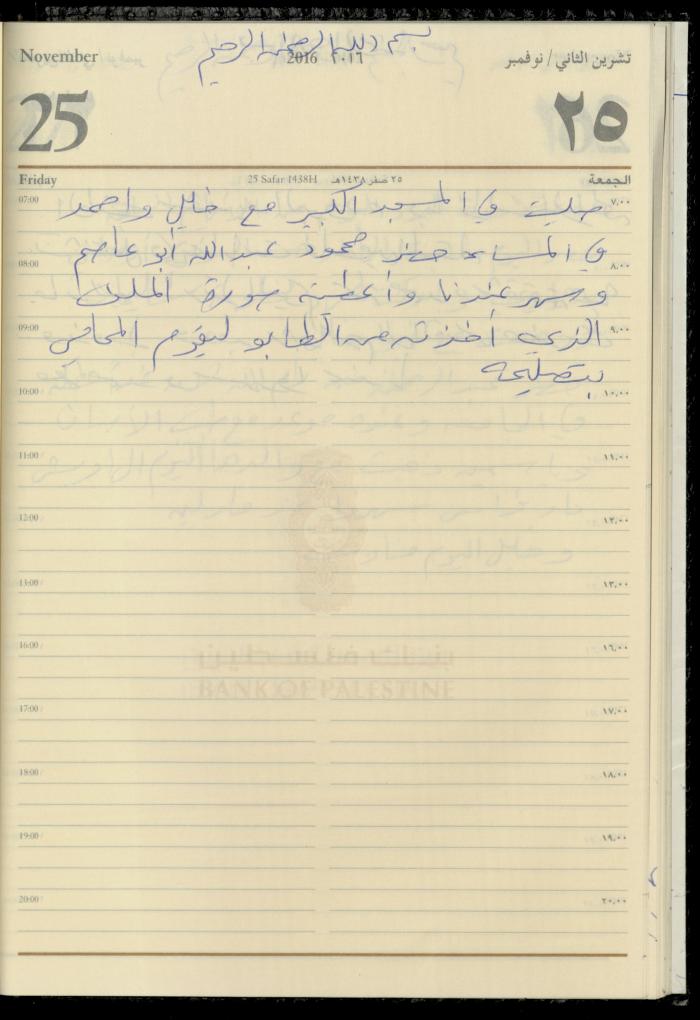 بسم الله الرحمن الرحيم
November 2016 ٢٠١٦ تشرين الثاني / نوفمبر
25 ٢٥
Friday 25 Safar 1438H ٢٥ صفر ١٤٣٨هـ الجمعة
07:00 صليت في المسجد الكبير مع خليل واحمد ٧,٠٠
في المساء حضر محمود عبدالله أبو عاصم
08:00 ٨,٠٠
وسهر عندنا وأعطيته صورة الملف
09:00 الذي أخذته من الطابو ليقوم المحامي ٩,٠٠
بتصليحه
10:00 ١٠,٠٠
11:00 ١١,٠٠
12:00 ١٢,٠٠
13:00 ١٣,٠٠
16:00 ١٦,٠٠
بنك فلسطين
BANK OF PALESTINE
17:00 ١٧,٠٠
18:00 ١٨,٠٠
19:00 ١٩,٠٠
20:00 ٢٠,٠٠